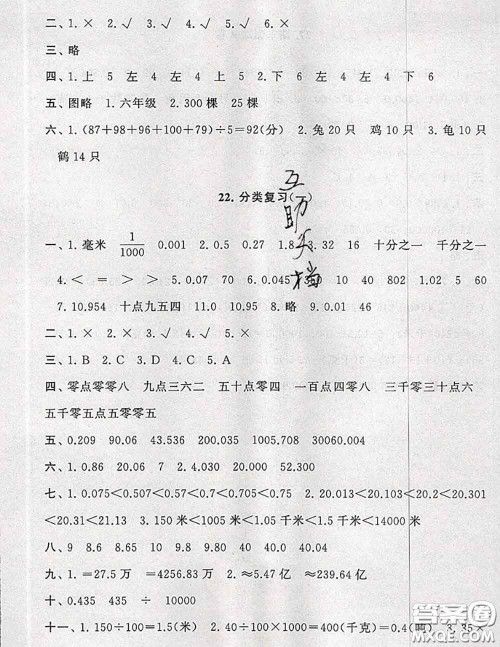 二、1.× 2.√ 3.√ 4.√ 5.√ 6.×
三、略
四、1.上 5 左 4 左 4 上 5 2.下 6 左 4 左 4 下 6
五、图略 1.六年级 2.300棵 25棵
六、1.(87+98+96+100+79)÷5=92(分) 2.兔20只 鸡10只 3.龟10只
鹤14只
22.分类复习(一)
互助文档
一、1.毫米 1/1000 0.001 2.0.5 0.27 1.8 3.32 16 十分之一 千分之一
4.< = > > 5.0.07 70 6.0.045 10 40 802 1.02 5 60
7.10.954 十点九五四 11.0 10.95 8.略 9.0.01 46
二、1.× 2.× 3.√ 4.√ 5.×
三、1.B 2.C 3.D 4.C 5.A
四、零点零零八 九点三六二 五十点零四 一百点四零八 三千零三十点六
五千零五点五零零五
五、0.209 90.06 43.536 200.345 1005.708 30060.004
六、1.0.86 20.06 7 2.4.850 0.020 52.300
七、1.0.075<0.507<0.57<0.7<0.705<0.75 2.20.013<20.103<20.13<20.301
<20.31<21.13 3.150米<1005米<1.05千米<1.5千米<14000米
八、9 8.6 8.65 90 9.8 9.80 40 40.0 40.04
九、1.=27.5万 =4256.83万 2.≈5.47亿 ≈239.64亿
十、0.435 435 ÷ 10000
十一、1.150÷100=1.5(米) 2.40÷100×1000=400(千克)=0.4(吨) 3.35×
答案圈
MXQE.COM